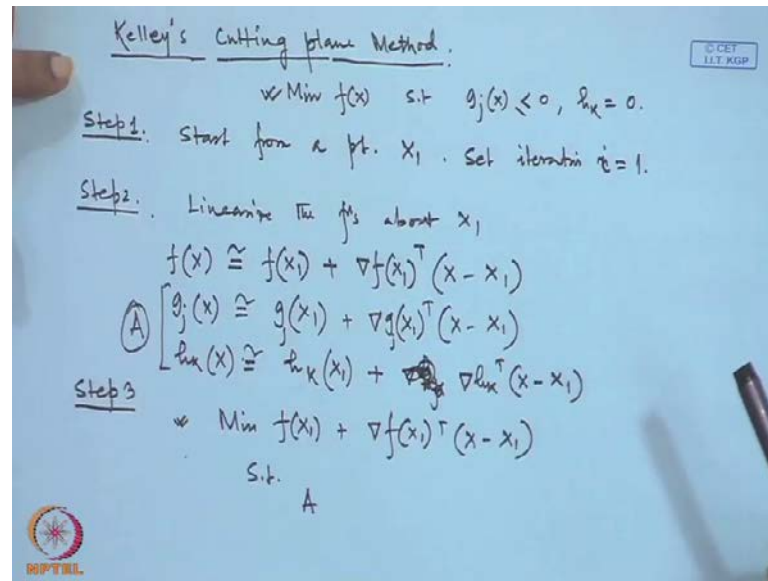 Kelley's Cutting plane Method.
© CET
I.I.T. KGP
Min f(x) s.t g_j(x) ≤ 0, h_k = 0.
Step1. Start from a pt. X_1. Set iteration i = 1.
Step2. Linearize the fⁿs about X_1
f(x) ≅ f(x_1) + ∇f(x_1)^T (x - x_1)
A [ g_j(x) ≅ g_j(x_1) + ∇g_j(x_1)^T (x - x_1)
h_k(x) ≅ h_k(x_1) + ∇h_k^T (x - x_1)
Step3
Min f(x_1) + ∇f(x_1)^T (x - x_1)
S.t.
A
NPTEL